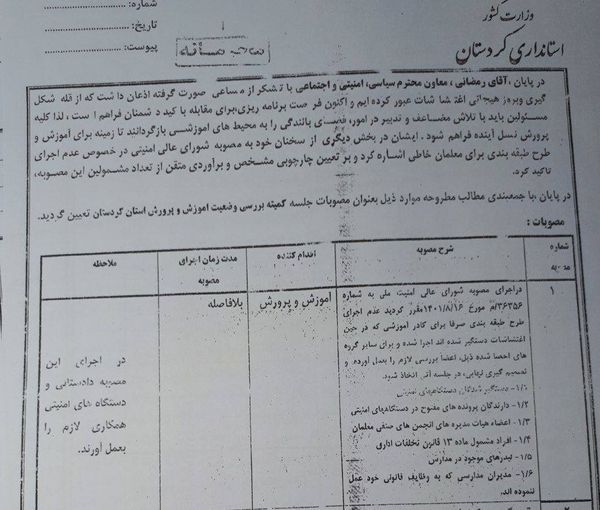 وزارت کشور
استانداری کردستان
شماره:
تاریخ:
پیوست:
در پایان، آقای رمضانی، معاون محترم سیاسی، امنیتی و اجتماعی با تشکر از مساعی صورت گرفته اذعان داشت که از قله شکل
گیری وبروز هیجانی اغتشاشات عبور کرده ایم و اکنون فرصت برنامه ریزی،برای مقابله با کید دشمنان فراهم است، لذا کلیه
مسئولین باید با تلاش مضاعف و تدبیر در امور، فضای بالندگی را به محیط های آموزشی بازگردانند تا زمینه برای آموزش و
پرورش نسل آینده فراهم شود. ایشان در بخش دیگری از سخنان خود به مصوبه شورای عالی امنیتی در خصوص عدم اجرای
طرح طبقه بندی برای معلمان خاطی اشاره کرد و بر تعیین چارچوبی مشخص و برآوردی متقن از تعداد مشمولین این مصوبه،
تاکید کرد.
در پایان ،با جمعبندی مطالب مطروحه موارد ذیل بعنوان مصوبات جلسه کمیته بررسی وضعیت آموزش و پرورش استان کردستان تعیین گردید.
مصوبات :
شماره مصوبه
شرح مصوبه
اقدام کننده
مدت زمان اجرای مصوبه
ملاحظه
۱
دراجرای مصوبه شورای عالی امنیت ملی به شماره
۳۶۳۵۶/م مورخ ۱۴۰۱/۸/۱۶مقرر گردید عدم اجرای
طرح طبقه بندی صرفا برای کادر آموزشی که در حین
اغتشاشات دستگیر شده اند اجرا شده و برای سایر گروه
های احصا شده ذیل، اعضا بررسی لازم را بعمل آورده و
تصمیم گیری نهایی، در جلسه آتی اتخاذ شود.
۱/۱- دستگیر شدگان دستگاههای امنیتی
۱/۲- دارندگان پرونده های مفتوح در دستگاههای امنیتی
۱/۳- اعضاء هیات مدیره های انجمن های صنفی معلمان
۱/۴- افراد مشمول ماده ۱۳ قانون تخلفات اداری
۱/۵- لیدرهای موجود در مدارس
۱/۶- مدیران مدارسی که به وظایف قانونی خود عمل
ننموده اند.
آموزش و پرورش
بلافاصله
در اجرای این
مصوبه دادستانی و
دستگاه های امنیتی
همکاری لازم را
بعمل آورند.